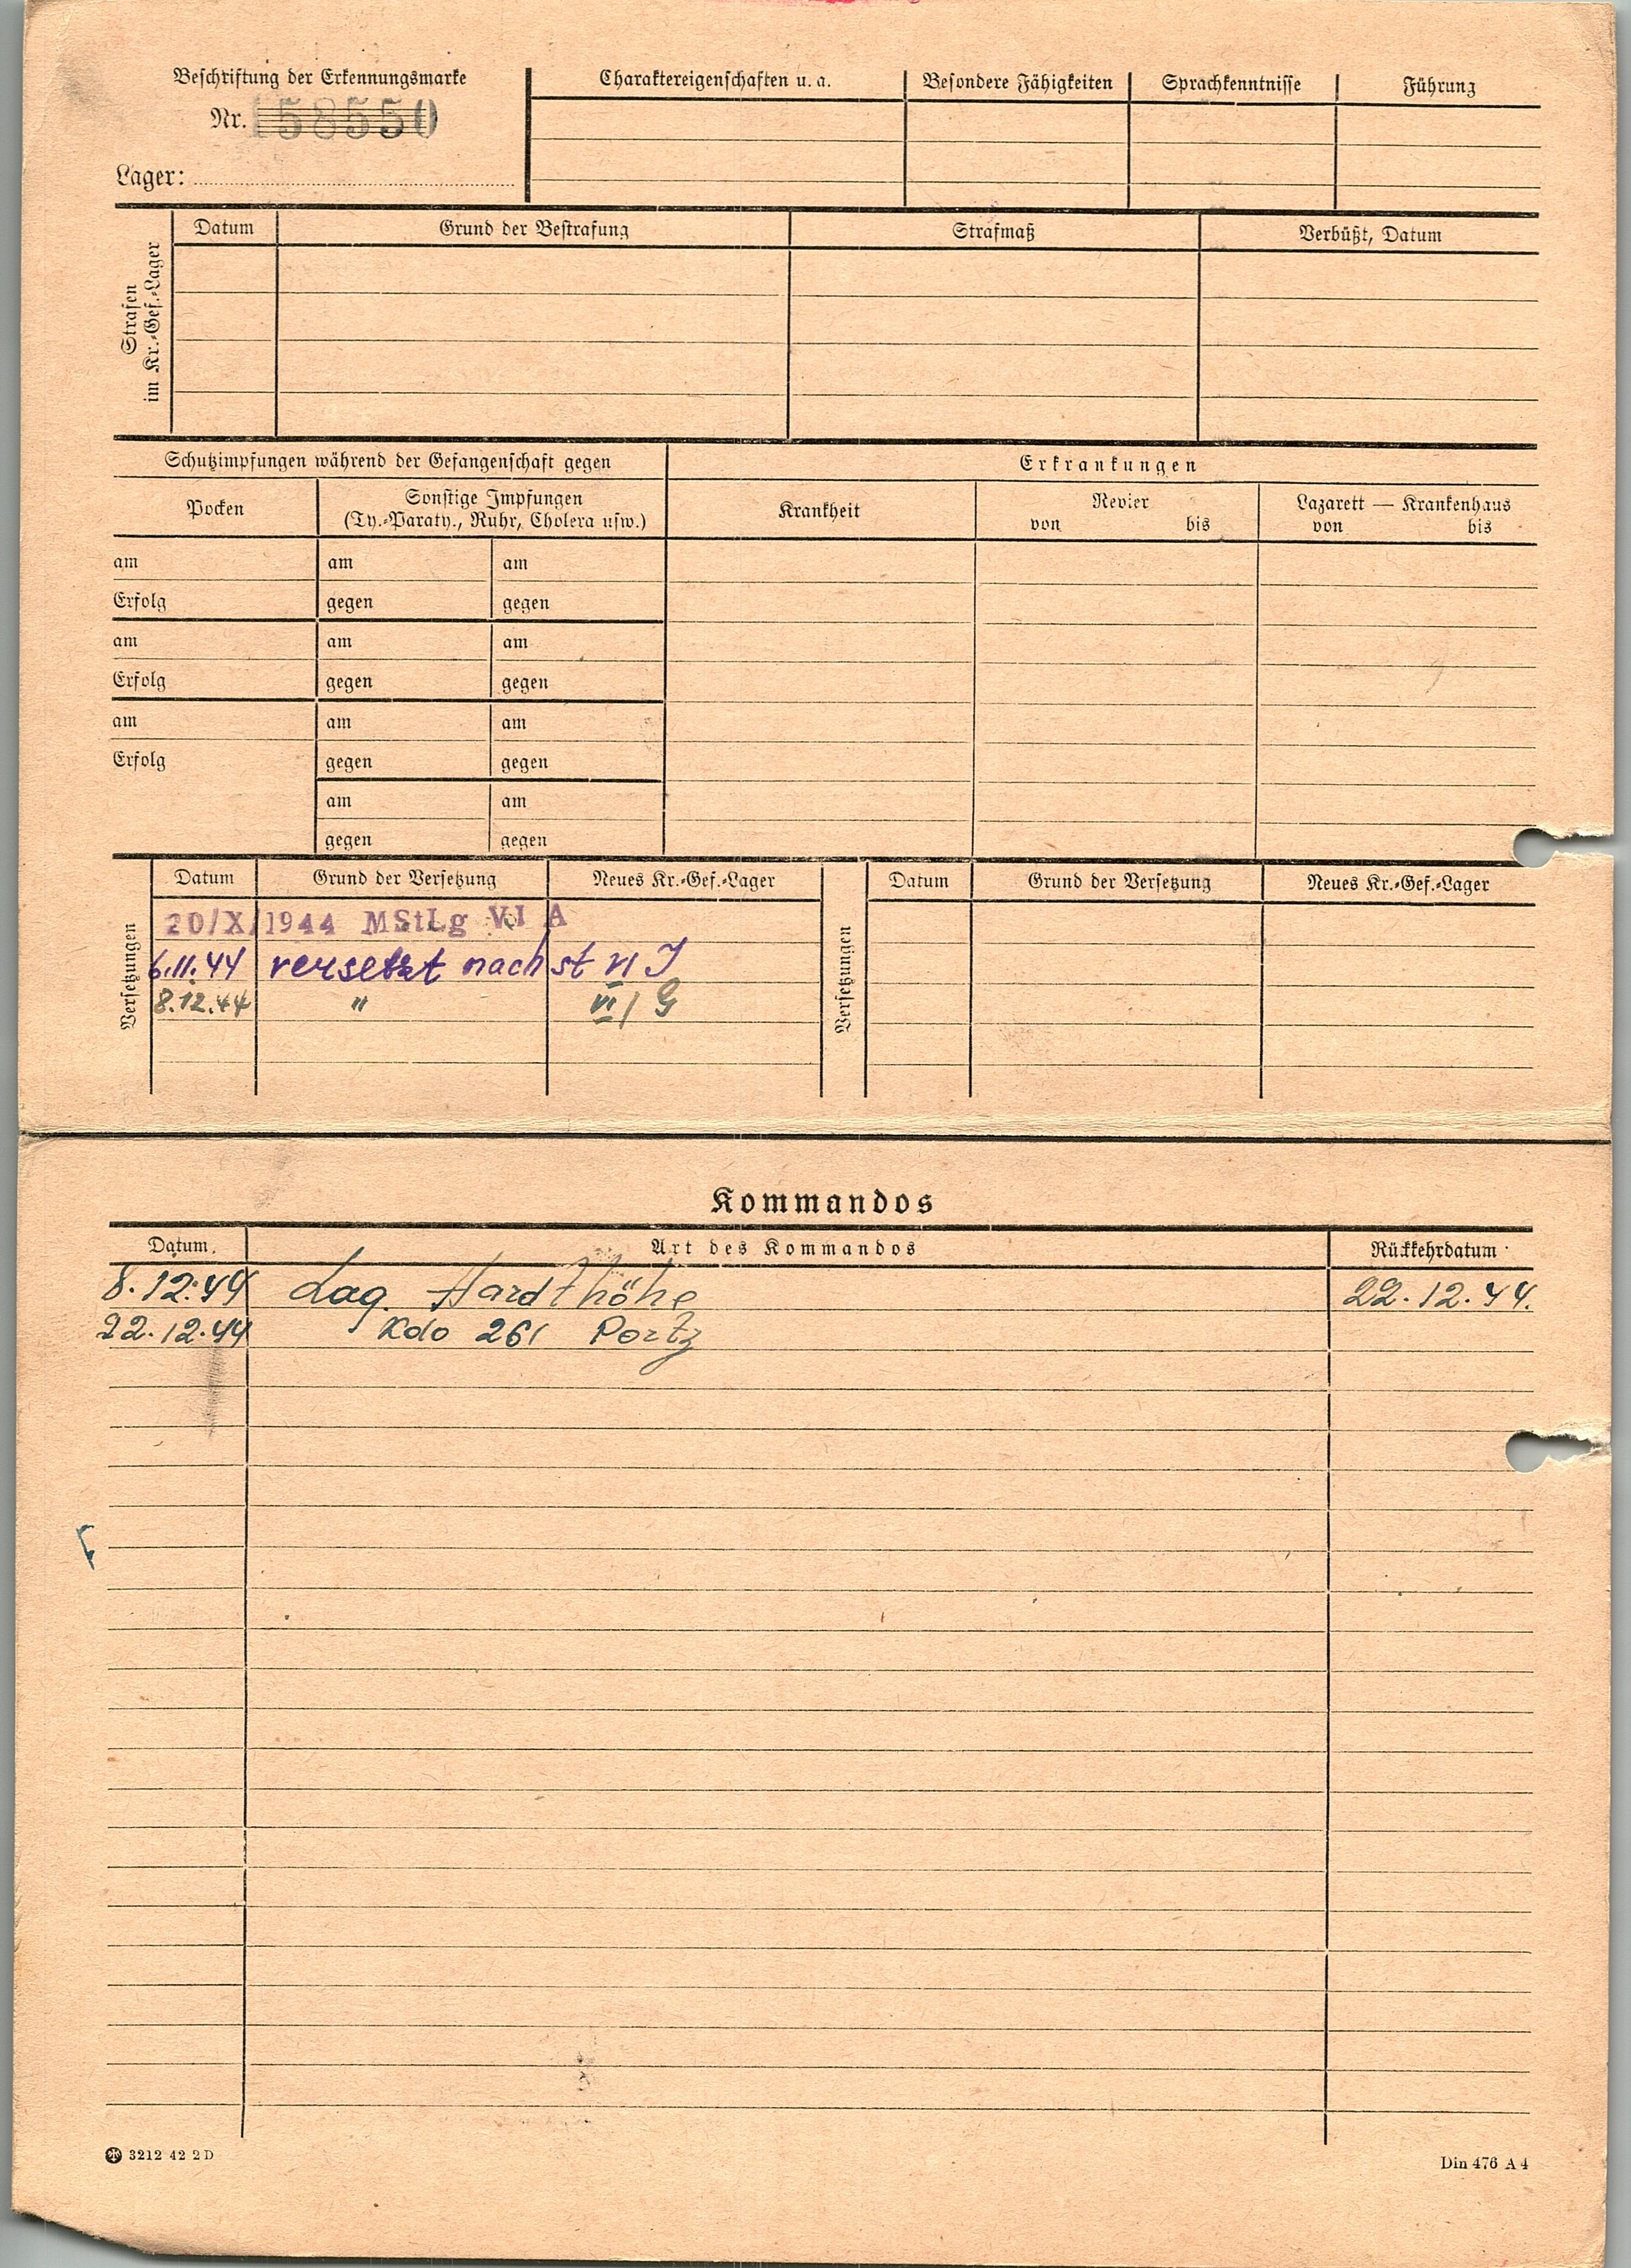 Beschriftung der Erkennungsmarke
Nr. 158550
Lager:
Charaktereigenschaften u. a.
Besondere Fähigkeiten
Sprachkenntnisse
Führung
Strafen im Kr.-Gef.-Lager
Datum
Grund der Bestrafung
Strafmaß
Verbüßt, Datum
Schutzimpfungen während der Gefangenschaft gegen
Erkrankungen
Pocken
Sonstige Impfungen
(Ty.-Paraty., Ruhr, Cholera usw.)
Krankheit
Revier
von bis
Lazarett — Krankenhaus
von bis
am am am
Erfolg gegen gegen
am am am
Erfolg gegen gegen
am am am
Erfolg gegen gegen
am am
gegen gegen
Versetzungen
Datum Grund der Versetzung Neues Kr.-Gef.-Lager
20/X/1944 MStLg VI A
6.11.44 versetzt nach st VI J
8.12.44 " VI/G
Versetzungen
Datum Grund der Versetzung Neues Kr.-Gef.-Lager
Kommandos
Datum. Art des Kommandos Rückkehrdatum
8.12.44 Lag. Hardthöhe 22.12.44.
22.12.44 Kdo 261 Portz
3212 42 2 D
Din 476 A 4